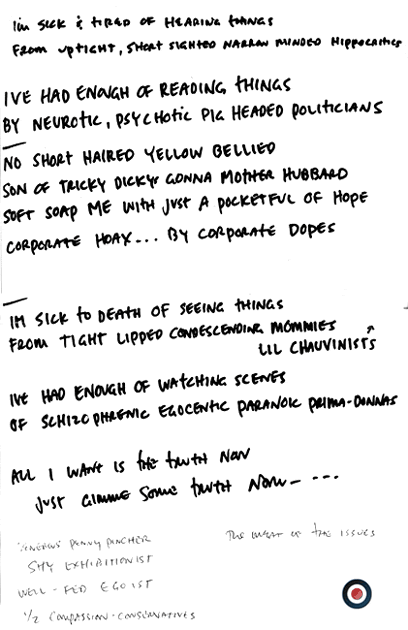 I'm SICK & TIRED OF HEARING THINGS
FROM UPTIGHT, SHORT SIGHTED NARROW MINDED HIPPOCRITICS
IVE HAD ENOUGH OF READING THINGS
BY NEUROTIC, PSYCHOTIC PIG HEADED POLITICIANS
NO SHORT HAIRED YELLOW BELLIED
SON OF TRICKY DICKYS GONNA MOTHER HUBBARD
SOFT SOAP ME WITH JUST A POCKETFUL OF HOPE
CORPORATE HOAX... BY CORPORATE DOPES
IM SICK TO DEATH OF SEEING THINGS
FROM TIGHT LIPPED CONDESCENDING MOMMIES
LIL CHAUVINISTS
IVE HAD ENOUGH OF WATCHING SCENES
OF SCHIZOPHRENIC EGOCENTIC PARANOIC PRIMA-DONNAS
ALL I WANT IS THE TRUTH NOW
JUST GIMME SOME TRUTH NOW- ...
PENNY PINCHER
THE OF THE ISSUES
SHY EXHIBITIONIST
WELL-FED EGOIST
1/2 COMPASSION-CONSERVATIVES